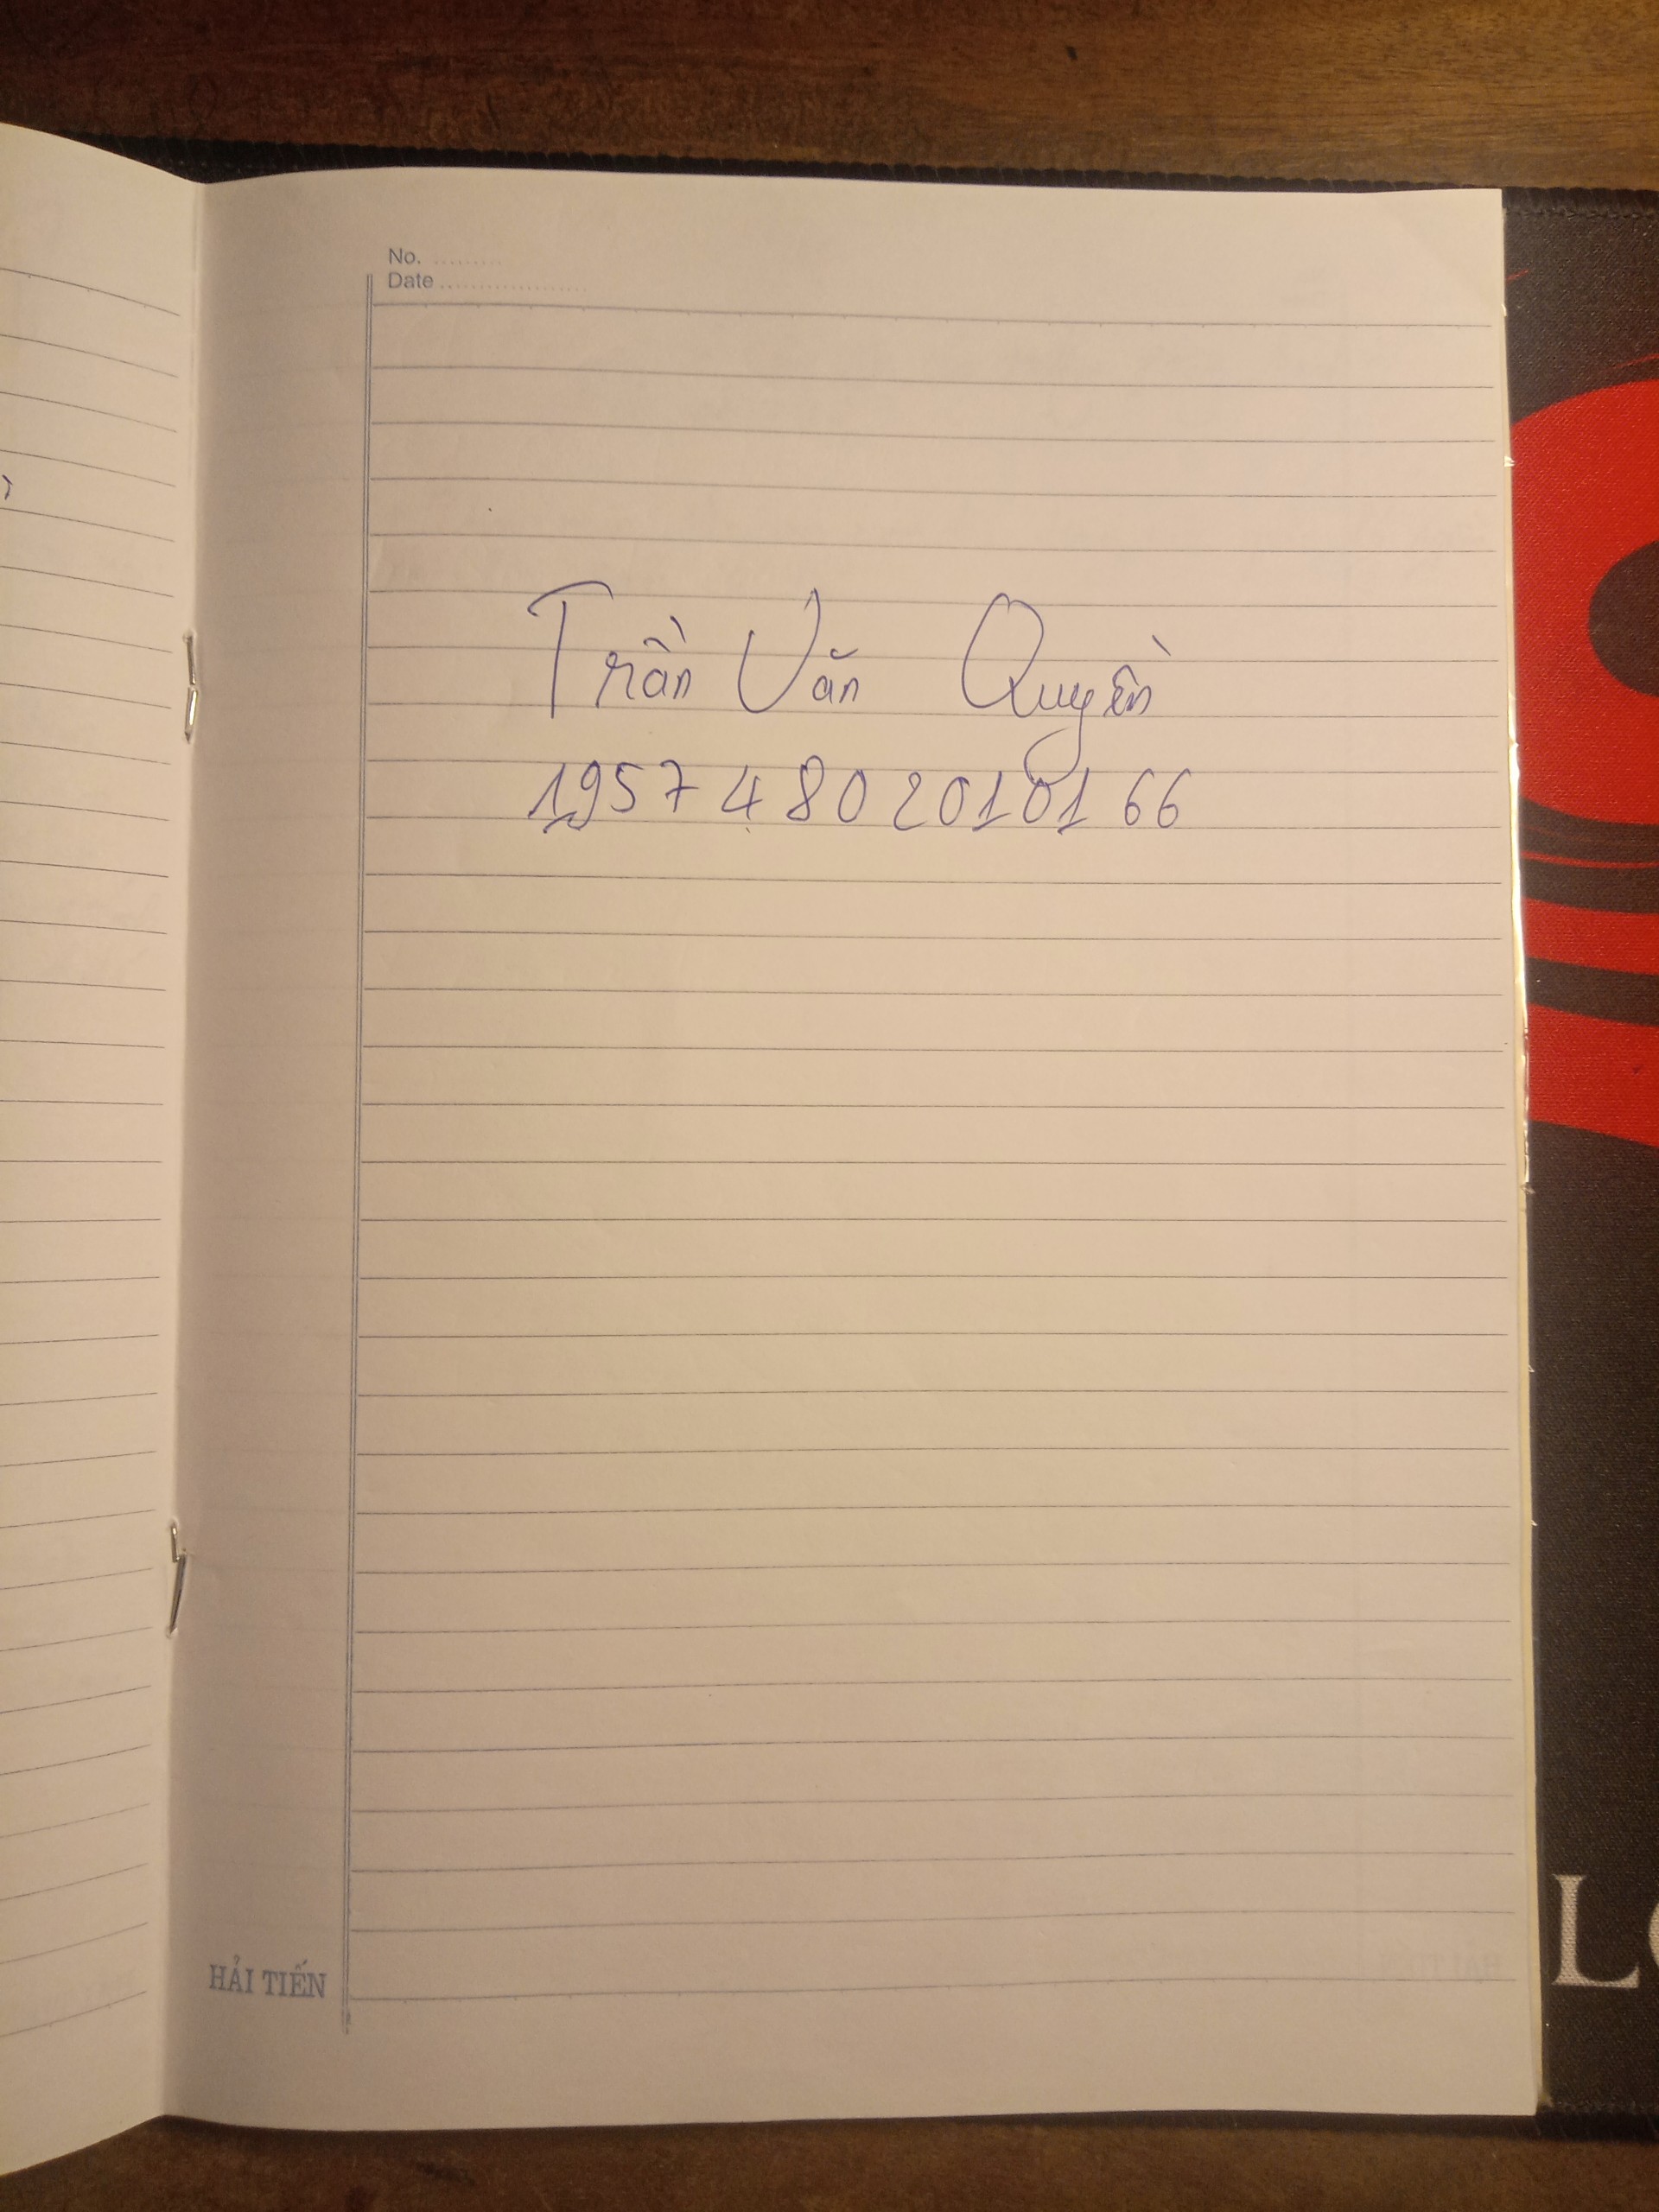 No. .........
Date ...................
Trần Văn Quyền
195748020101 66
HẢI TIẾN